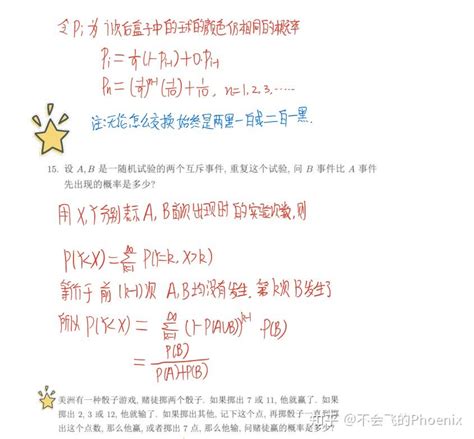 令 Pi 为 i 次后盒子中的球的颜色仍相同的概率
Pi = 1/4 (1-Pi-1) + 0·Pi-1
Pn = (-1/4)^(n-1) (-1/10) + 1/10, n=1,2,3,.....
注:无论怎么交换始终是两黑一白或二白一黑.
15. 设 A, B 是一随机试验的两个互斥事件, 重复这个试验, 问 B 事件比 A 事件
先出现的概率是多少?
用 X,Y分别表示A,B首次出现时的实验次数,则
P(Y<X) = ∑ k=1 ∞ P(Y=k, X>k)
等价于前(k-1)次 A,B均没有发生, 第k次B发生了
所以 P(Y<X) = ∑ k=1 ∞ (1-P(A∪B))^(k-1) P(B)
= P(B) / P(A)+P(B)
美洲有一种骰子游戏, 赌徒掷两个骰子. 如果掷出 7 或 11, 他就赢了. 如果
掷出 2, 3 或 12, 他就输了. 如果掷出其他, 记下这个点, 再掷骰子一直到掷
出这个点数, 那么他赢, 或者掷出 7 点, 那么他输, 问赌徒赢的概率是多少?
知乎 @不会飞的Phoenix